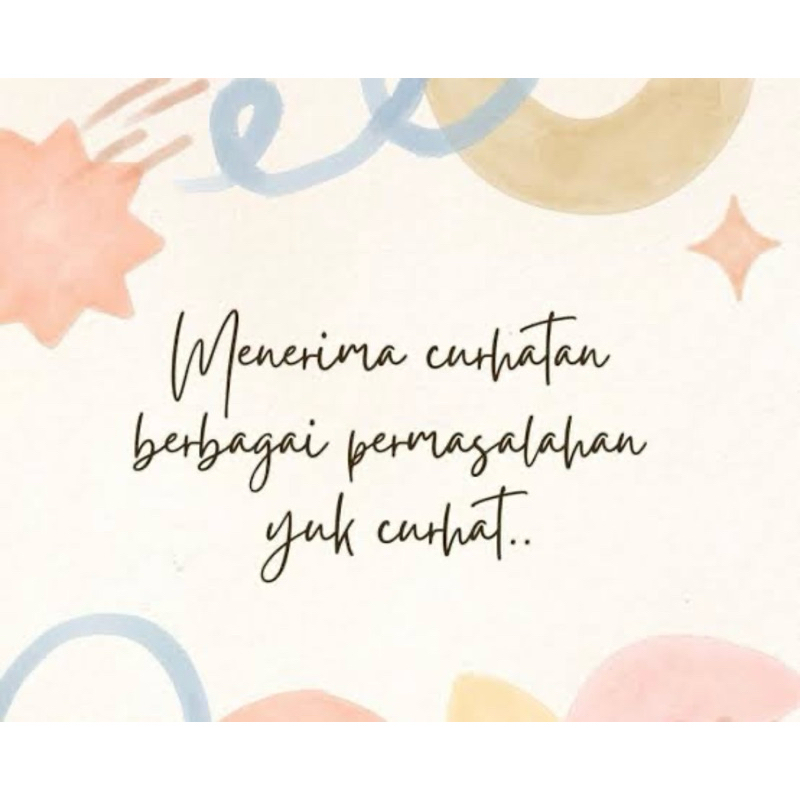 Menerima curhatan
berbagai permasalahan
yuk curhat..